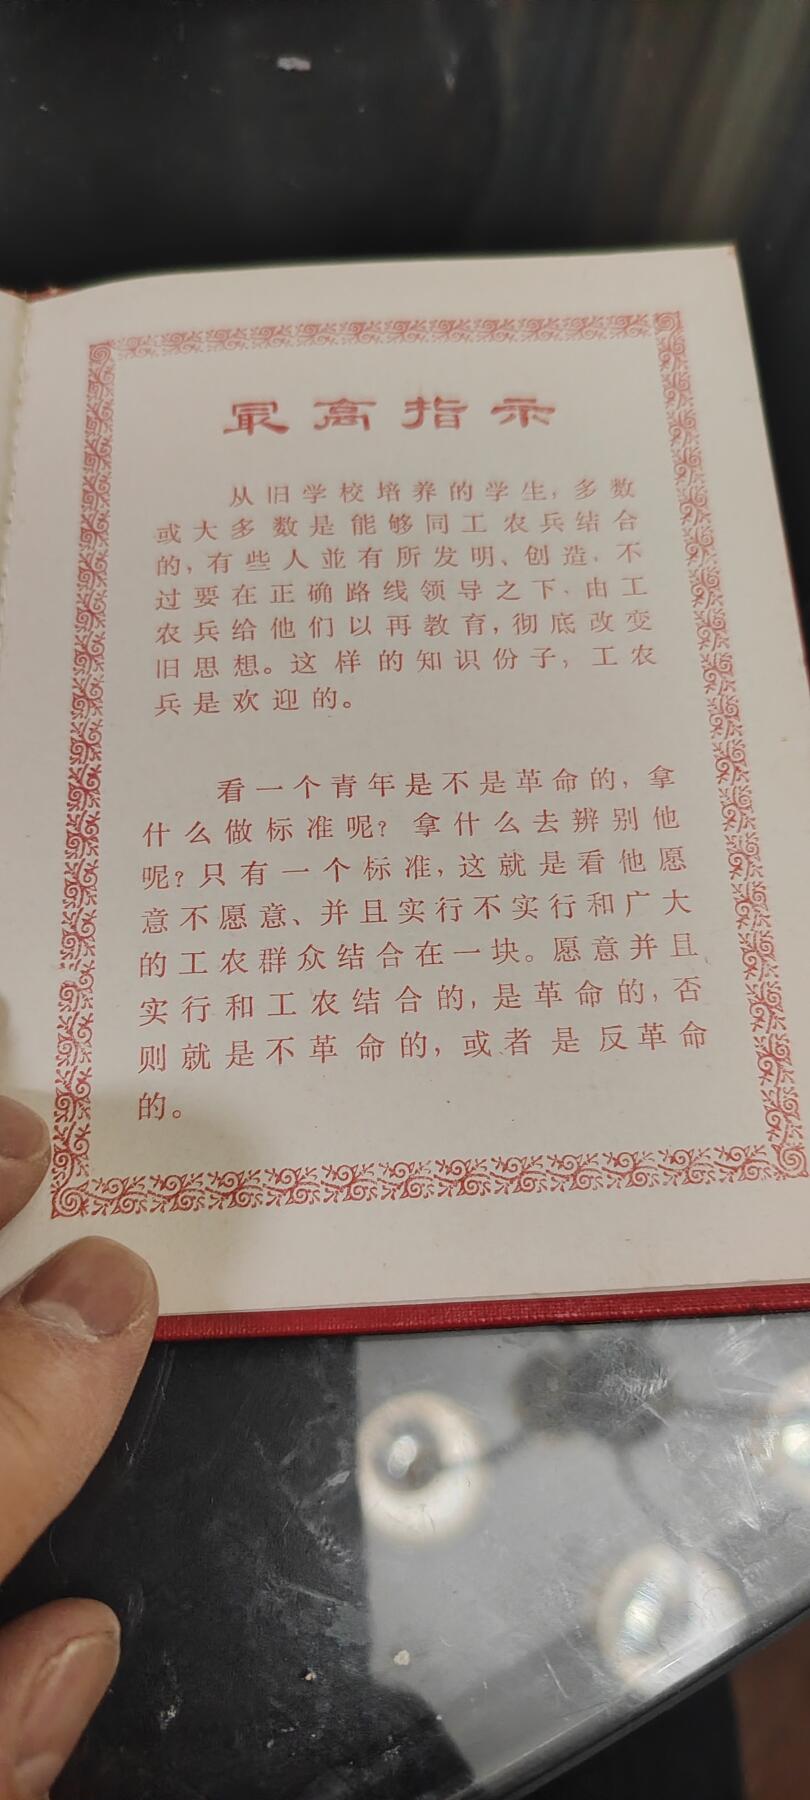 最高指示
从旧学校培养的学生，多数
或大多数是能够同工农兵结合
的，有些人並有所发明、创造，不
过要在正确路线领导之下，由工
农兵给他们以再教育，彻底改变
旧思想。这样的知识份子，工农
兵是欢迎的。
看一个青年是不是革命的，拿
什么做标准呢？拿什么去辨别他
呢？只有一个标准，这就是看他愿
意不愿意、并且实行不实行和广大
的工农群众结合在一块。愿意并且
实行和工农结合的，是革命的，否
则就是不革命的，或者是反革命
的。